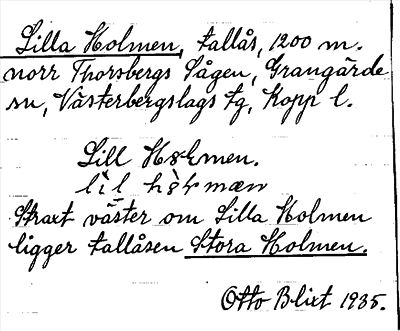 Lilla Holmen, tallås, 1200 m.
norr Thorsbergs Sågen, Grangärde
sn, Västerbergslags tg, Kopp l.
Lill Holmen.
Straxt väster om Lilla Holmen
ligger tallåsen Stora Holmen.
Otto Blixt 1935.